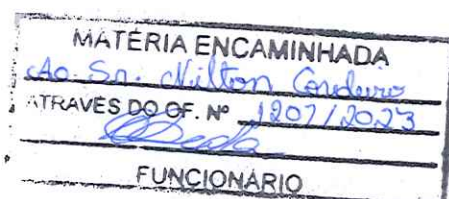 MATÉRIA ENCAMINHADA
Ao Sr. Nilton Cordeiro
ATRAVÉS DO OF. Nº 1207/2023
FUNCIONÁRIO